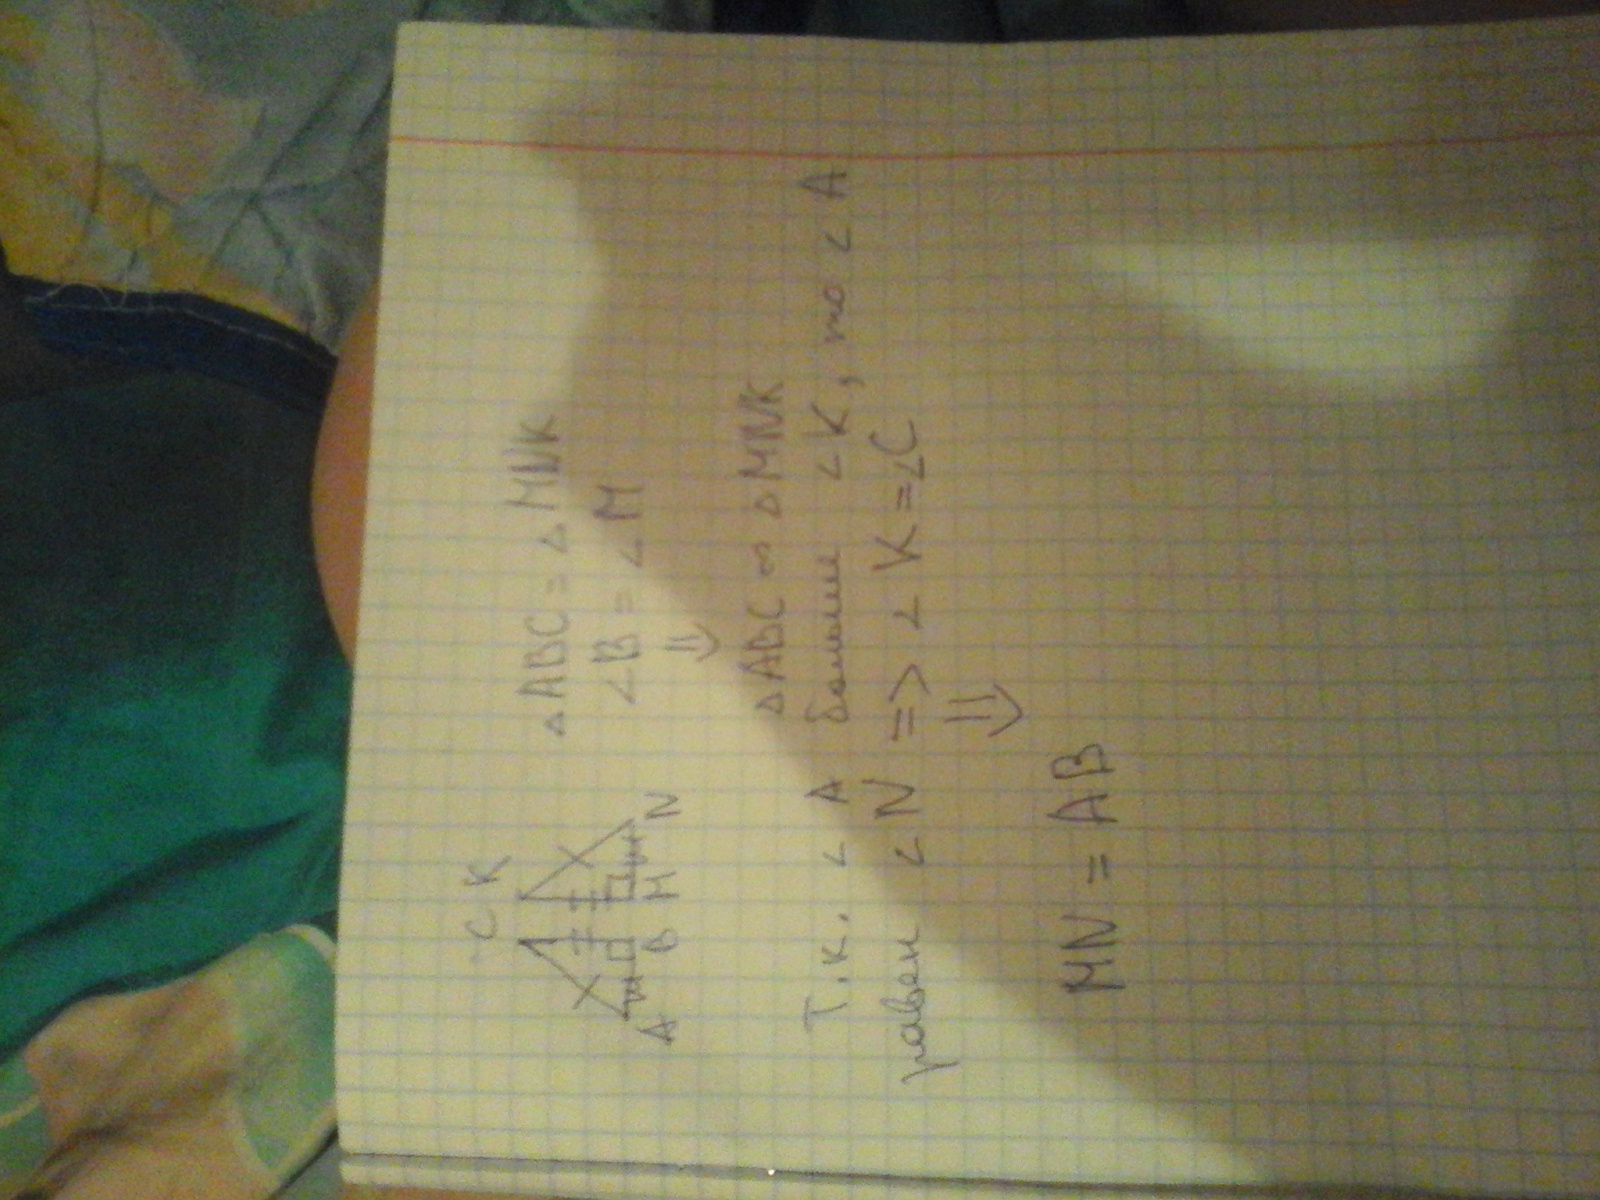 C K
A B M N
△ABC = △MNK
∠B = ∠M
⇓
△ABC ∞ △MNK
Т.к. ∠A больше ∠K, то ∠A
равен ∠N => ∠K = ∠C
⇓
MN = AB